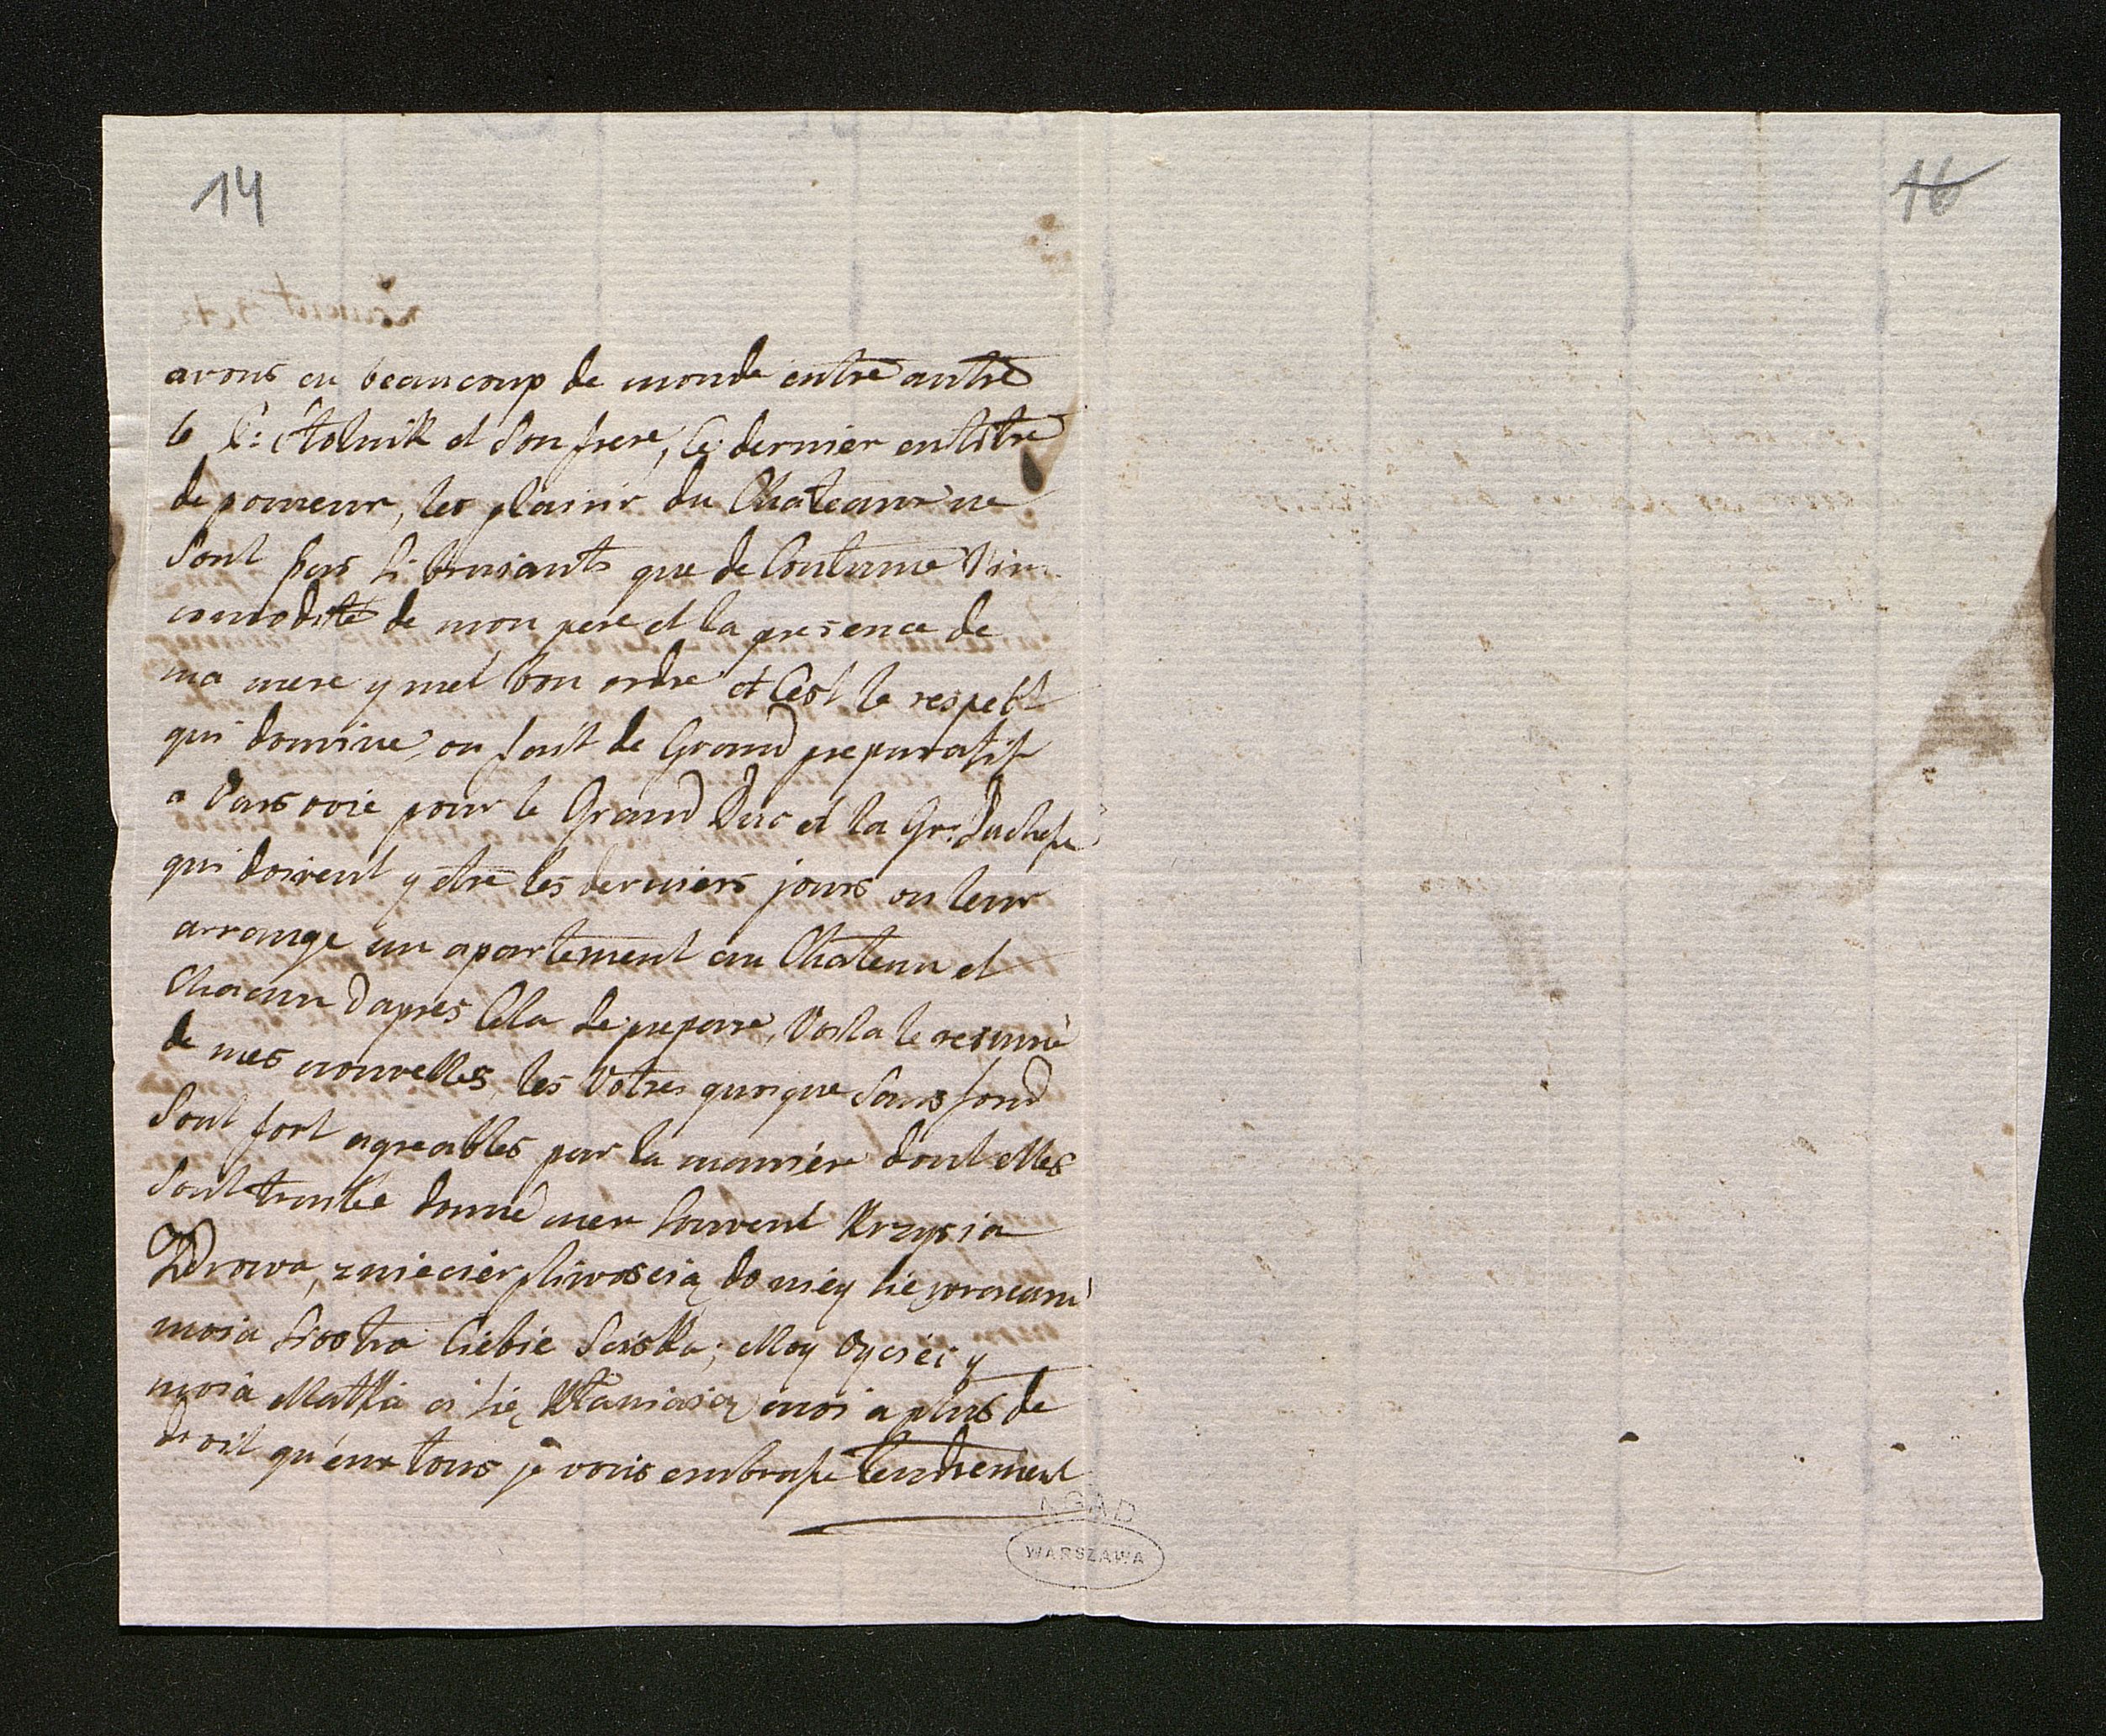 14
16
avons eu beaucoup de monde entre autre
le C: Stolnik et Son frere, Ce dernier en titre
de poureur, les plaisir du Chateaux ne
Sont pas Si bruiants que de Coutume l'in
comodité de mon pere et la presence de
ma mere y met bon ordre et C'est le respect
qui domine, on fait de Grand preparatif
a Varsovie pour le Grand Duc et la Gr: Duchesse
qui doivent y etre les derniers jours on leur
arrange un apartement au Chateau et
Chacun d'apres Cela Se prepare, Voila le resumé
de mes nouvelles, les Votres quoique Sans fond
Sont fort agreables par la manière dont elles
Sont traitée donné men Souvent Krzysia
Zdrowa, z niecierpliwoscią do niéy sie
moia Siostra Ciebie Sciska; Moy Oyciéc y
moia Matka ci się Kłaniaią moi a plus de
droit qu'eux tous je vous embrasse tendrement
AGAD
WARSZAWA